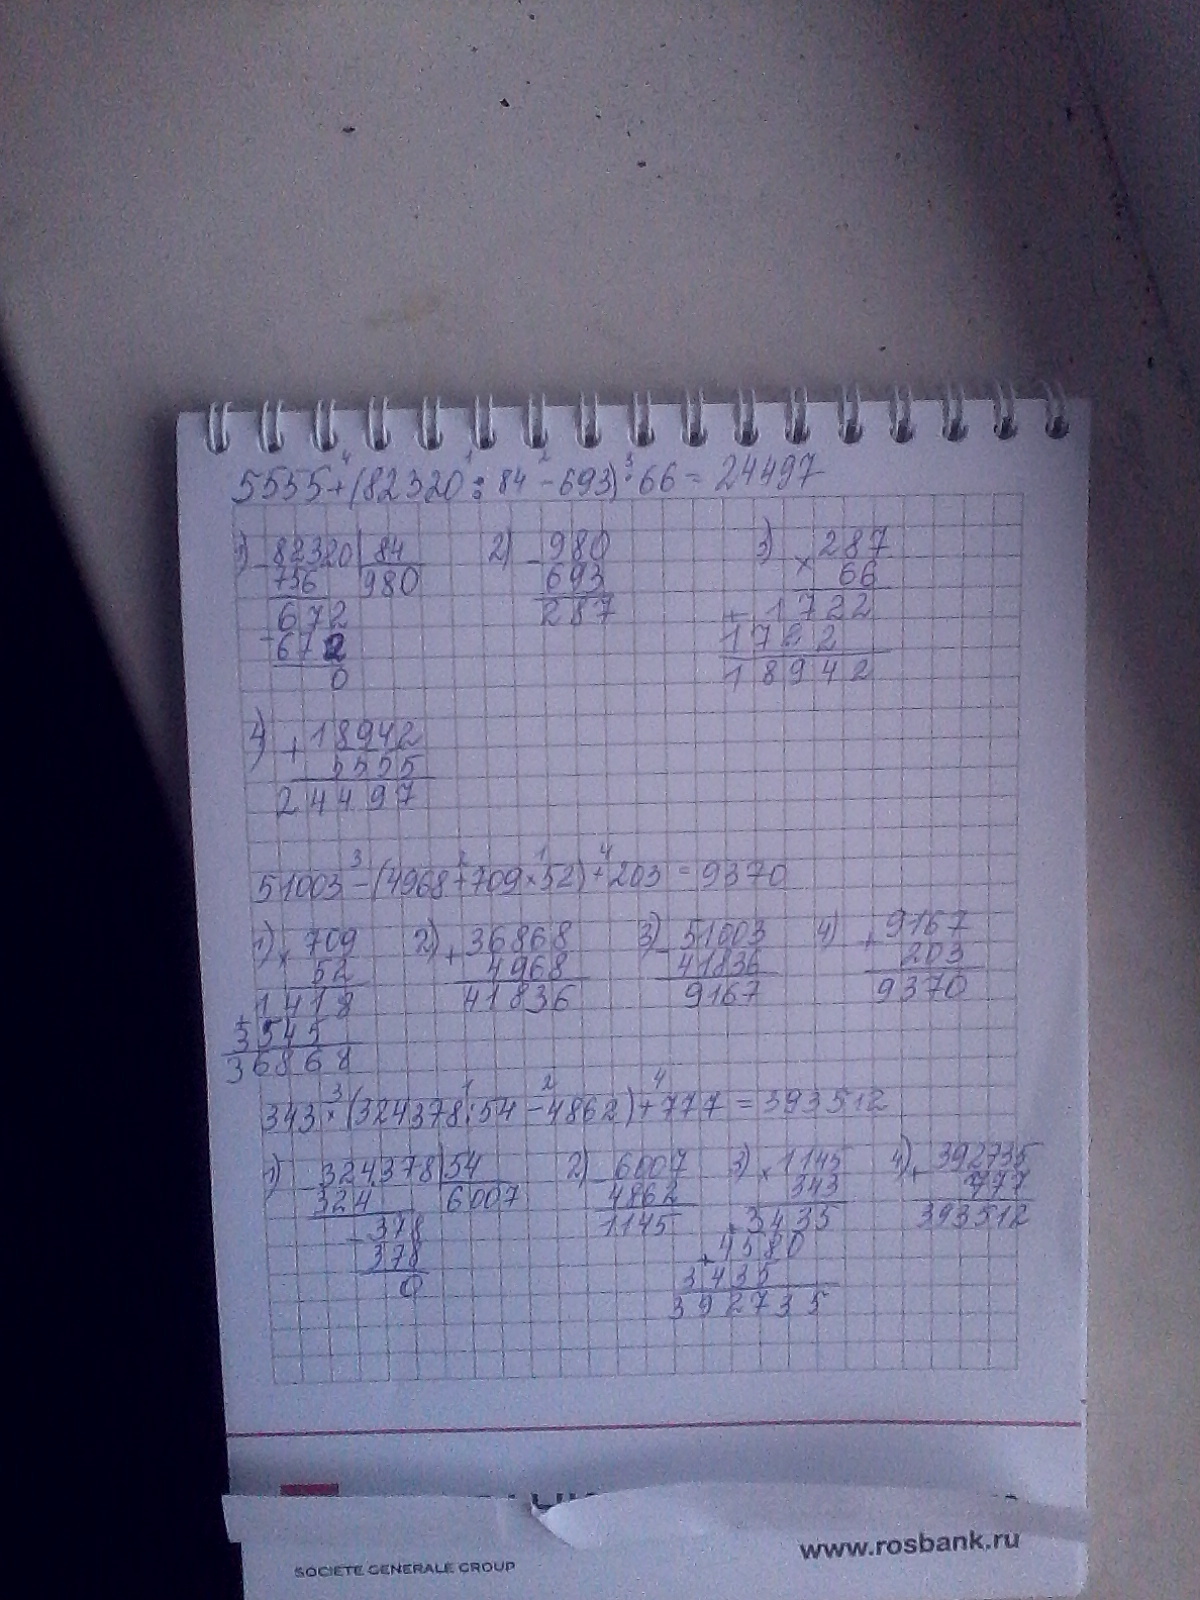 5555+(82320:84-693)·66=24497
4 1 2 3
1) 82320|84 2) 980 3) 287
- 756 980 - 693 × 66
672 287 + 1722
- 672 1722
0 18942
4) + 18942
5555
24497
3 2 1 4
51003-(4968+709×52)+203=9370
1) × 709 2) + 36868 3) - 51003 4) + 9167
52 4968 41836 203
+ 1418 41836 9167 9370
3545
36868
3 1 2 4
343×(324378:54-4862)+777=393512
1) - 324378|54 2) - 6007 3) × 1145 4) + 392735
324 6007 4862 343 777
- 378 1145 + 3435 393512
378 + 4580
0 3435
392735
www.rosbank.ru
SOCIETE GENERALE GROUP